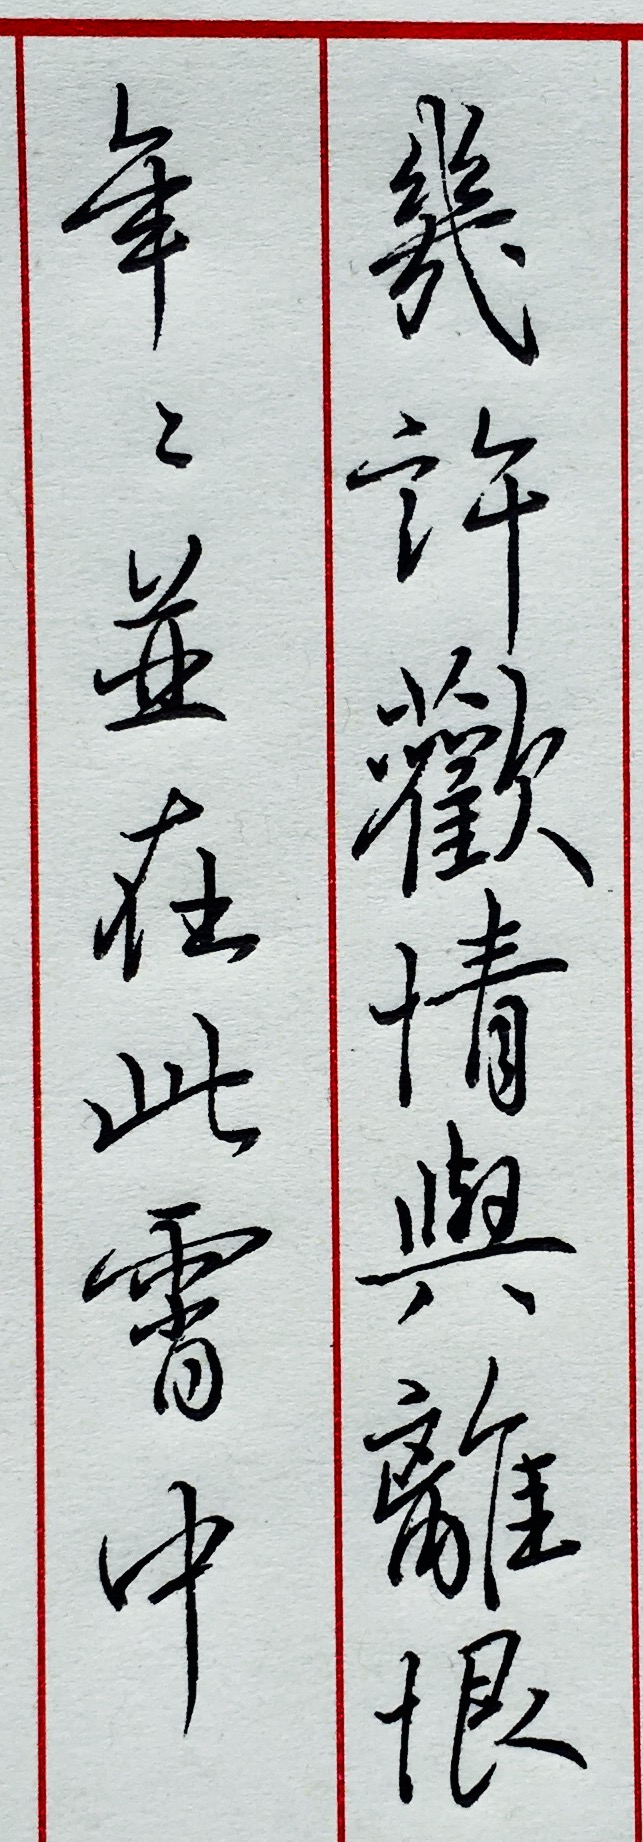 幾許歡情與離恨
年々並在此霄中